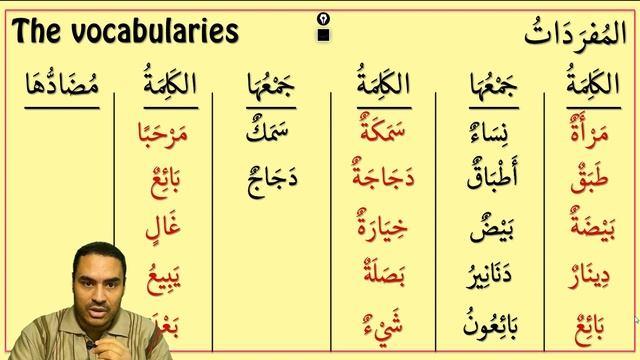 The vocabularies المُفرَدَاتُ
الكَلِمَةُ جَمْعُهَا الكَلِمَةُ جَمْعُهَا الكَلِمَةُ مُضَادُّهَا
مَرْأَةٌ نِسَاءٌ سَمَكَةٌ سَمَكٌ مَرْحَبًا
طَبَقٌ أَطْبَاقٌ دَجَاجَةٌ دَجَاجٌ بَائِعٌ
بَيْضَةٌ بَيْضٌ خِيَارَةٌ غَالٍ
دِينَارٌ دَنَانِيرُ بَصَلَةٌ يَبِيعُ
بَائِعٌ بَائِعُونُ شَيْءٌ